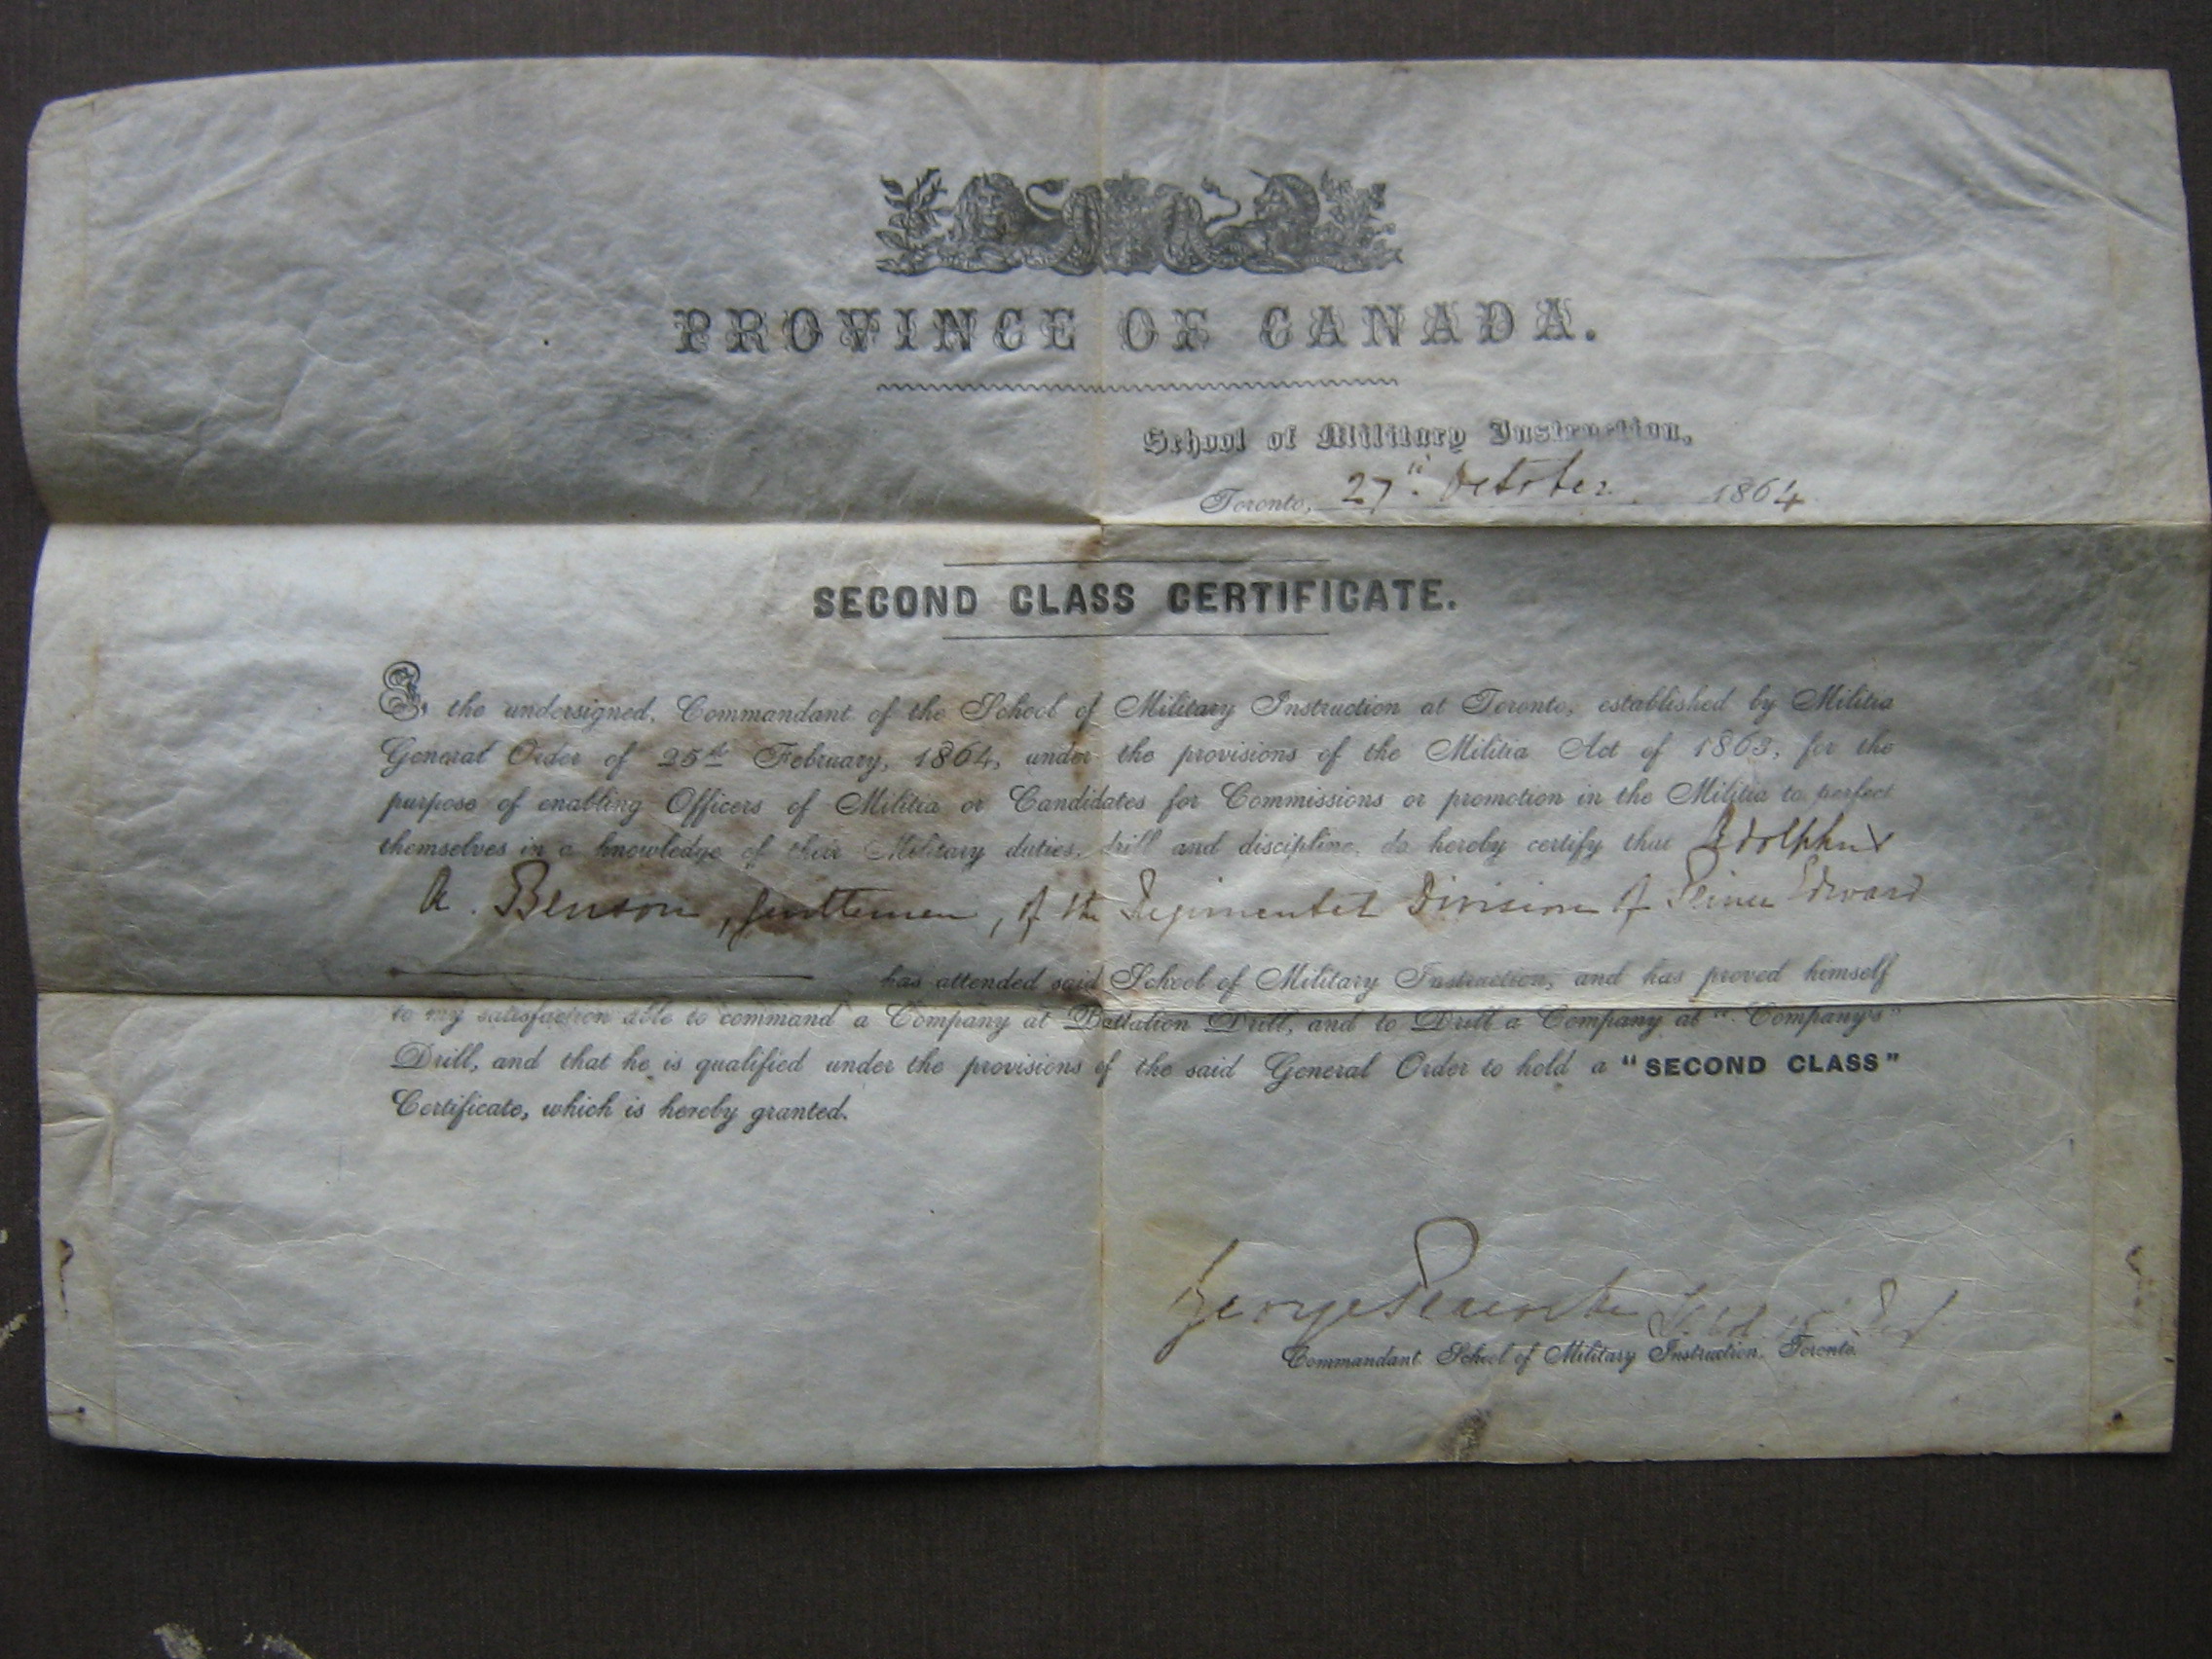 PROVINCE OF CANADA.
School of Military Instruction,
Toronto, 27th October 1864
SECOND CLASS CERTIFICATE.
I, the undersigned, Commandant of the School of Military Instruction at Toronto, established by Militia
General Order of 25th February, 1864, under the provisions of the Militia Act of 1863, for the
purpose of enabling Officers of Militia or Candidates for Commissions or promotion in the Militia to perfect
themselves in a knowledge of their Military duties, drill and discipline, do hereby certify that Adolphus
A. Benson, Gentleman, of the Regimental Division of Prince Edward
has attended said School of Military Instruction, and has proved himself
to my satisfaction able to command a Company at Battalion Drill, and to Drill a Company at "Company's"
Drill, and that he is qualified under the provisions of the said General Order to hold a "SECOND CLASS"
Certificate, which is hereby granted.
George
Commandant School of Military Instruction, Toronto.